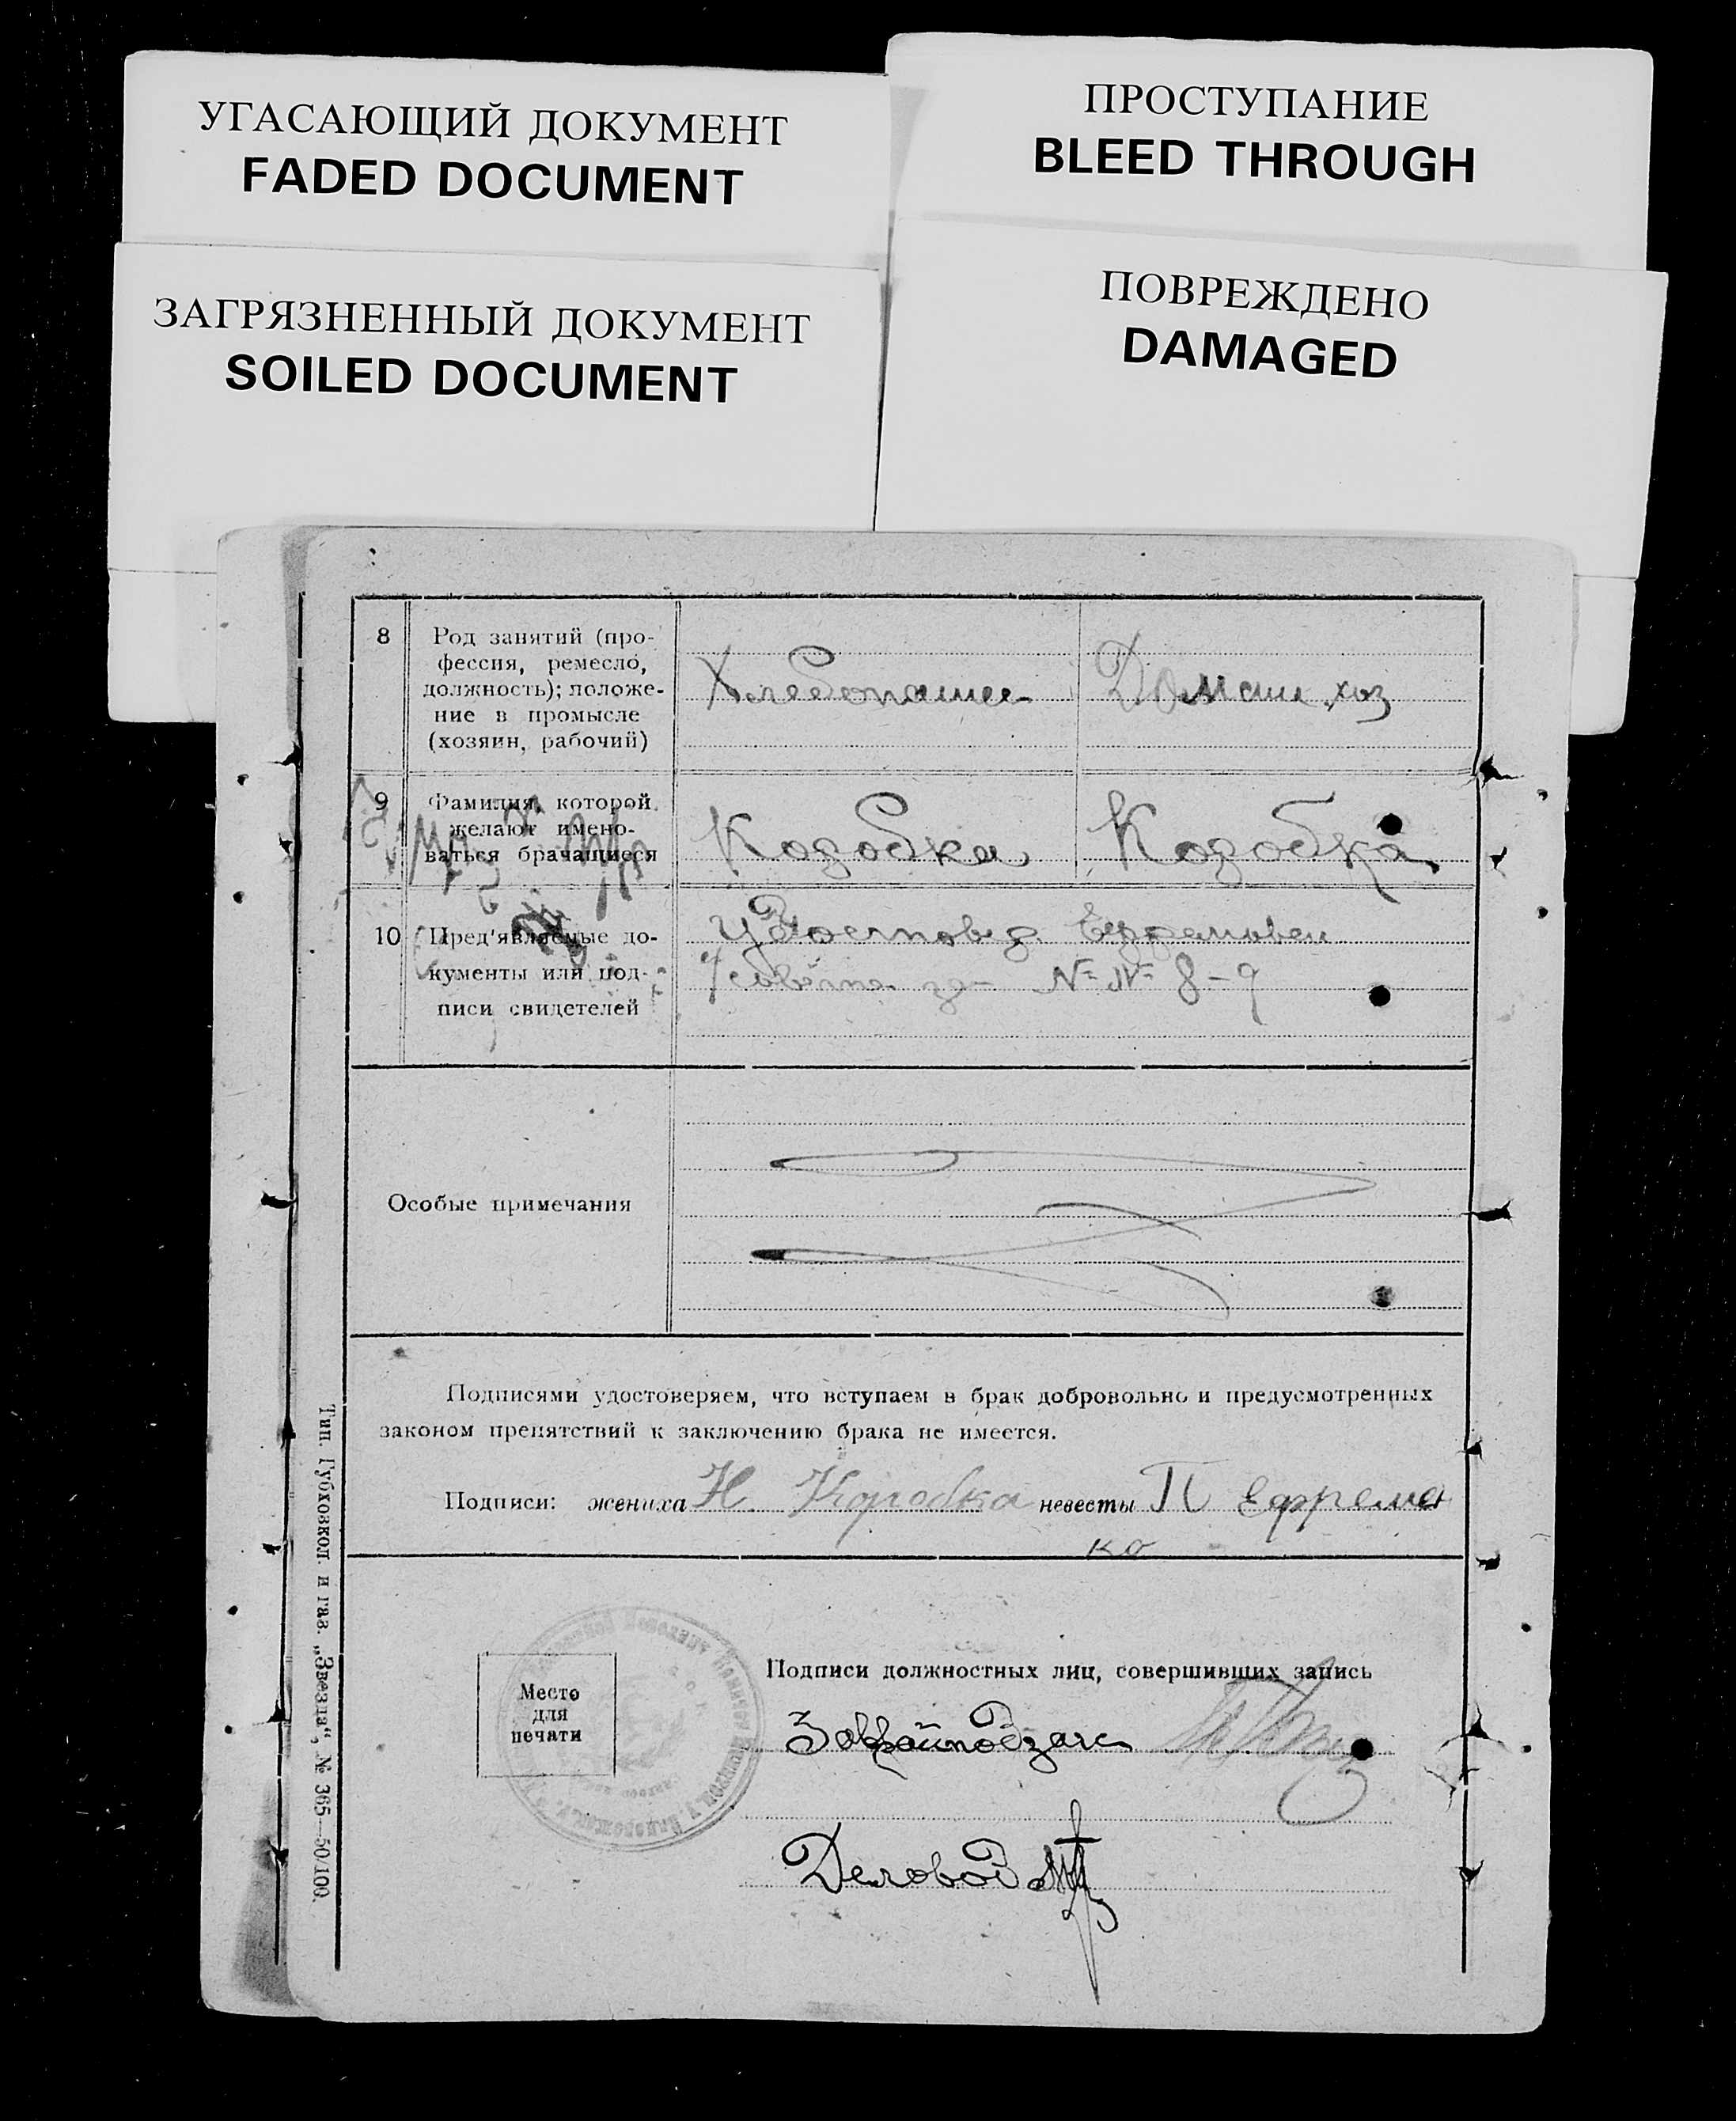 УГАСАЮЩИЙ ДОКУМЕНТ
FADED DOCUMENT
ПРОСТУПАНИЕ
BLEED THROUGH
ЗАГРЯЗНЕННЫЙ ДОКУМЕНТ
SOILED DOCUMENT
ПОВРЕЖДЕНО
DAMAGED
8
Род занятий (про-
фессия, ремесло,
должность); положе-
ние в промысле
(хозяин, рабочий)
Хлебопашец
Домаш. хоз
9
Фамилия, которой
желают имено-
ваться брачащиеся
Коробка
Коробка
10
Пред'являемые до-
кументы или под-
писи свидетелей
Удостовер
№ № 8-9
Особые примечания
Подписями удостоверяем, что вступаем в брак добровольно и предусмотренных
законом препятствий к заключению брака не имеется.
Подписи: жениха Н Коробка невесты П Ефремен
ко
Место
для
печати
Подписи должностных лиц, совершивших запись
Заврайподзагс
Деловод
Тип. Губховкоп. и газ. „Звезда", № 365—50/100.